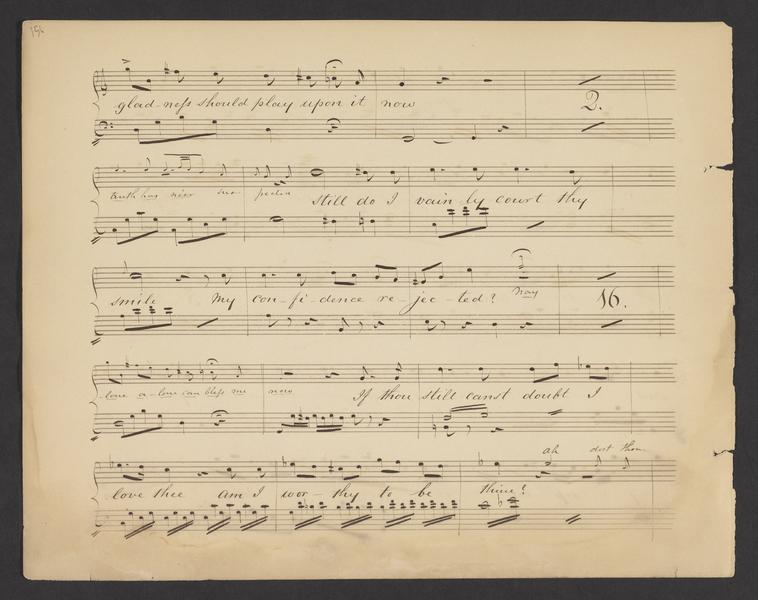 156
glad-ness should play upon it now 2.
truth has never still do I vain-ly court thy
smile my con-fi-dence re-jec-ted? nay 16.
love a-lone can bless me now If thou still canst doubt I
ah dost thou
love thee am I wor-thy to be thine?